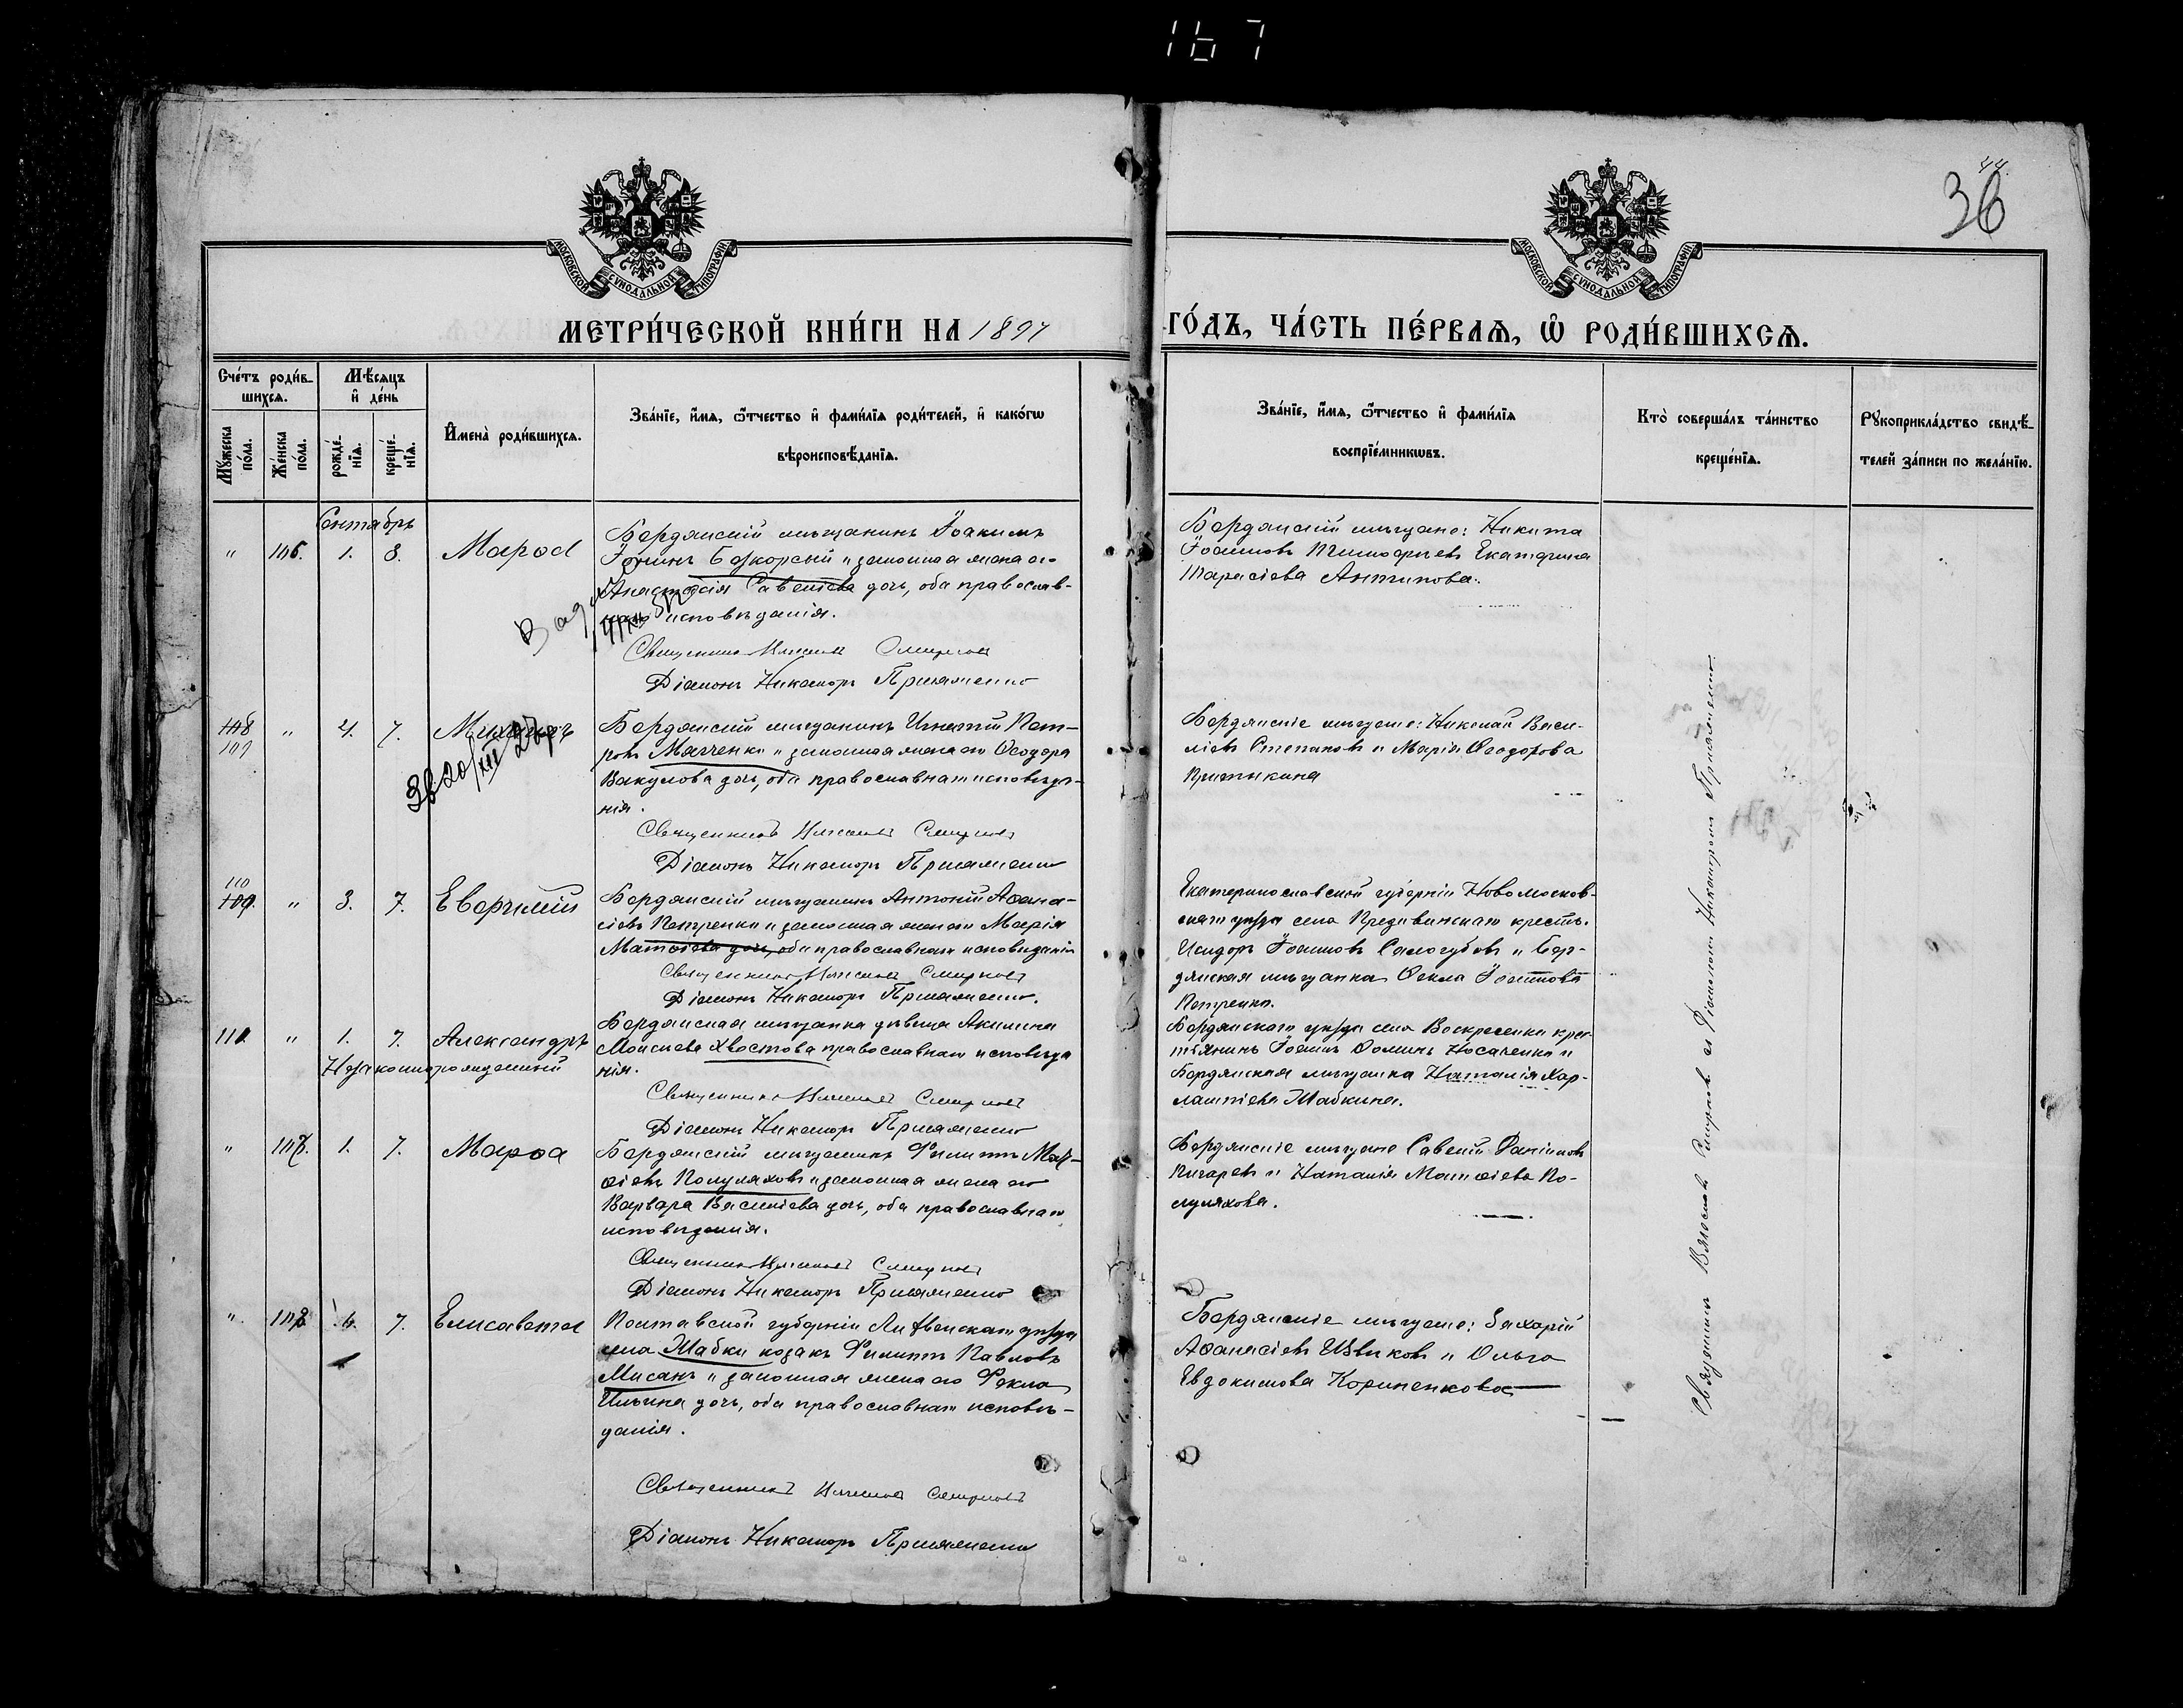 167
44.
36
МОСКОВСКОЙ СѴНОДАЛЬНОЙ ТИПОГРАФІИ
МОСКОВСКОЙ СѴНОДАЛЬНОЙ ТИПОГРАФІИ
МЕТРИ́ЧЕСКОЙ КНИ́ГИ НА 1897
ГО́ДЪ, ЧА́СТЬ ПЕ́РВАѦ, Ѡ҆ РОДИ́ВШИХСѦ.
Сче́тъ роди́в-
шихсѧ.
Мꙋ́жеска
по́ла.
Же́нска
по́ла.
Мѣ́сѧцъ
и҆ де́нь
рожде́-
нїѧ.
креще́-
нїѧ.
И҆мена̀ роди́вшихсѧ.
Зва́нїе, и҆́мѧ, ѻ҆́тчество и҆ фами́лїѧ роди́телей, и҆ како́гѡ
вѣроисповѣ́данїѧ.
Зва́нїе, и҆́мѧ, ѻ҆́тчество и҆ фами́лїѧ
воспрїе́мникѡвъ.
Кто̀ соверша́лъ та́инство
креще́нїѧ.
Рꙋкоприкла́дство свидѣ́-
телей за́писи по жела́нїю.
Сентябрь
" 106. 1. 8. Марѳа
Бердянскій мѣщанинъ Іоакимъ
Іонинъ Безкорсый и законная жена его
Анастасія Савеліева дочь, оба православ-
исповѣданія.
Священникъ Смирновъ
Діаконъ Никаноръ
Бердянскіе мѣщане: Никита
Іоанновъ Тимофеевъ Екатерина
Тарасіева Антипова.
108
109 " 4. 7. Михаилъ
Бердянскій мѣщанинъ Игнатій Пет-
ровъ Мазченко и законная жена его Ѳеодора
Вакулова дочь, оба православнаго исповѣда-
нія.
Священникъ Смирновъ
Діаконъ Никаноръ
Бердянскіе мѣщане: Николай Васи-
ліевъ Степановъ и Марія Ѳеодорова
110
109. " 3. 7. Евѳимій
Бердянскій мѣщанинъ Антоній Аѳана-
сіевъ Петренко и законная жена его Марія
Матвіева дочь, оба православнаго исповѣданія
Священникъ Смирновъ
Діаконъ Никаноръ
Екатеринославской губерніи Новомосков-
скаго уѣзда села крестьян.
Исидоръ Іоанновъ Самогубовъ и Бер-
дянская мѣщанка Ѳекла
Петренко.
111. " 1. 7. Александръ
Незаконнорожденный
Бердянская мѣщанка дѣвица Акилина
Моисеева Хвостова православнаго исповѣда
нія.
Священникъ Смирновъ
Діаконъ Никаноръ
Бердянскаго уѣзда села Воскресенки крес-
тьянинъ Іоаннъ Ѳоминъ Носаченко и
Бердянская мѣщанка Наталія Хар-
лампіева Шабкина.
" 107. 1. 7. Марѳа
Бердянскій мѣщанинъ Филиппъ Мат-
ѳіевъ Полуляховъ и законная жена его
Варвара Василіева дочь, оба православнаго
исповѣданія.
Священникъ Смирновъ
Діаконъ Никаноръ
Бердянскіе мѣщане Савелій
и Наталія Матѳіева По-
луляхова.
" 108 6. 7. Елисавета
Полтавской губерніи уѣзда
села Шабки козакъ Филиппъ Павловъ
Мисанъ и законная жена его Ѳекла
Ильина дочь, оба православнаго исповѣ-
данія.
Священникъ Смирновъ
Діаконъ Никаноръ
Бердянскіе мѣщане: Захарій
Аѳанасіевъ и Ольга
Евдокимова Кориненкова
Священникъ Смирновъ и Діаконъ Никаноръ